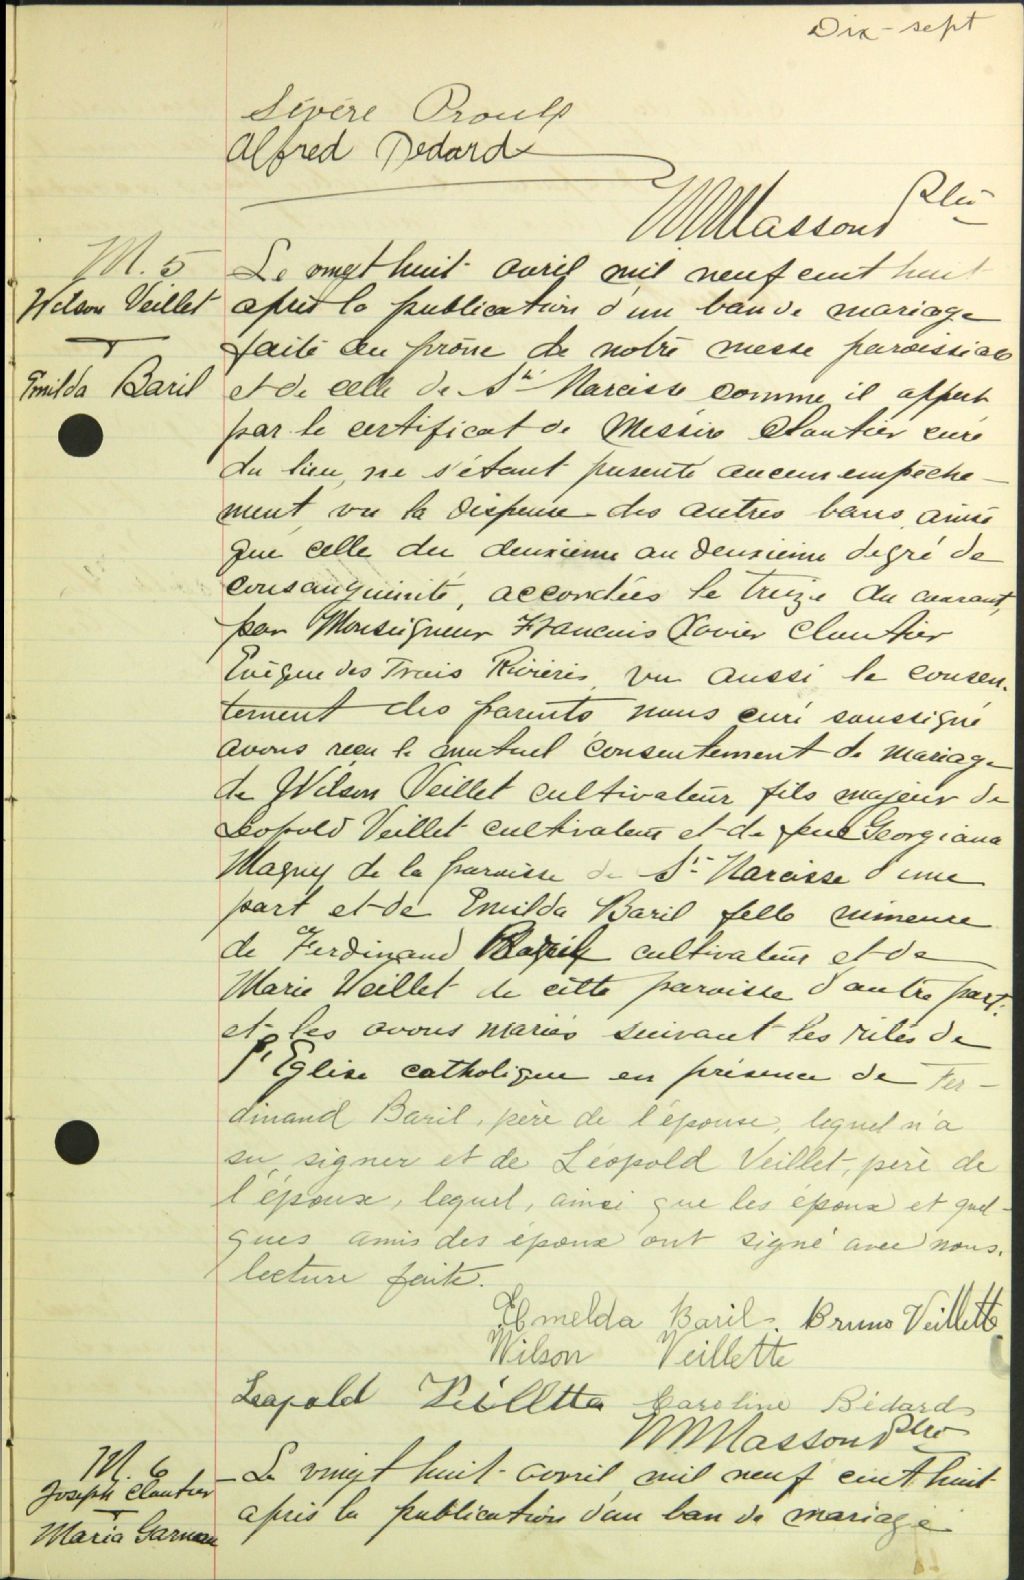 Dix-sept
Sévère Proulx
Alfred Dedard
M Masson Ptre
M. 5
Wilson Veillet
&
Emilda Baril
Le vingt huit avril mil neuf cent huit
après la publication d'un ban de mariage
faite au prône de notre messe paroissiale
et de celle de St Narcisse comme il appert
par le certificat de Messire Cloutier curé
du lieu, ne s'étant présenté aucun empêche-
ment, vu la dispense des autres bans ainsi
que celle du deuxième au deuxième degré de
consanguinité, accordées le treize du courant,
par Monseigneur François Xavier Cloutier
Evêque des Trois Rivières, vu aussi le consen-
tement des parents nous curé soussigné
avons reçu le mutuel consentement de mariage
de Wilson Veillet cultivateur fils majeur de
Léopold Veillet cultivateur et de feue Georgiana
Magny de la paroisse de St Narcisse d'une
part et de Emilda Baril fille mineure
de Ferdinand Baril cultivateur et de
Marie Veillet de cette paroisse d'autre part.
et les avons mariés suivant les rites de
l'Eglise catholique en présence de Fer-
dinand Baril, père de l'épouse, lequel n'a
su signer et de Léopold Veillet, père de
l'époux, lequel, ainsi que les époux et quel-
ques amis des époux ont signé avec nous.
lecture faite.
Elmelda Baril. Bruno Veillette
Wilson Veillette
Leopold Veillette Caroline Bédard
M Masson Ptre
M. 6
Joseph Cloutier
&
Maria Garneau
Le vingt huit avril mil neuf cent huit
après la publication d'un ban de mariage